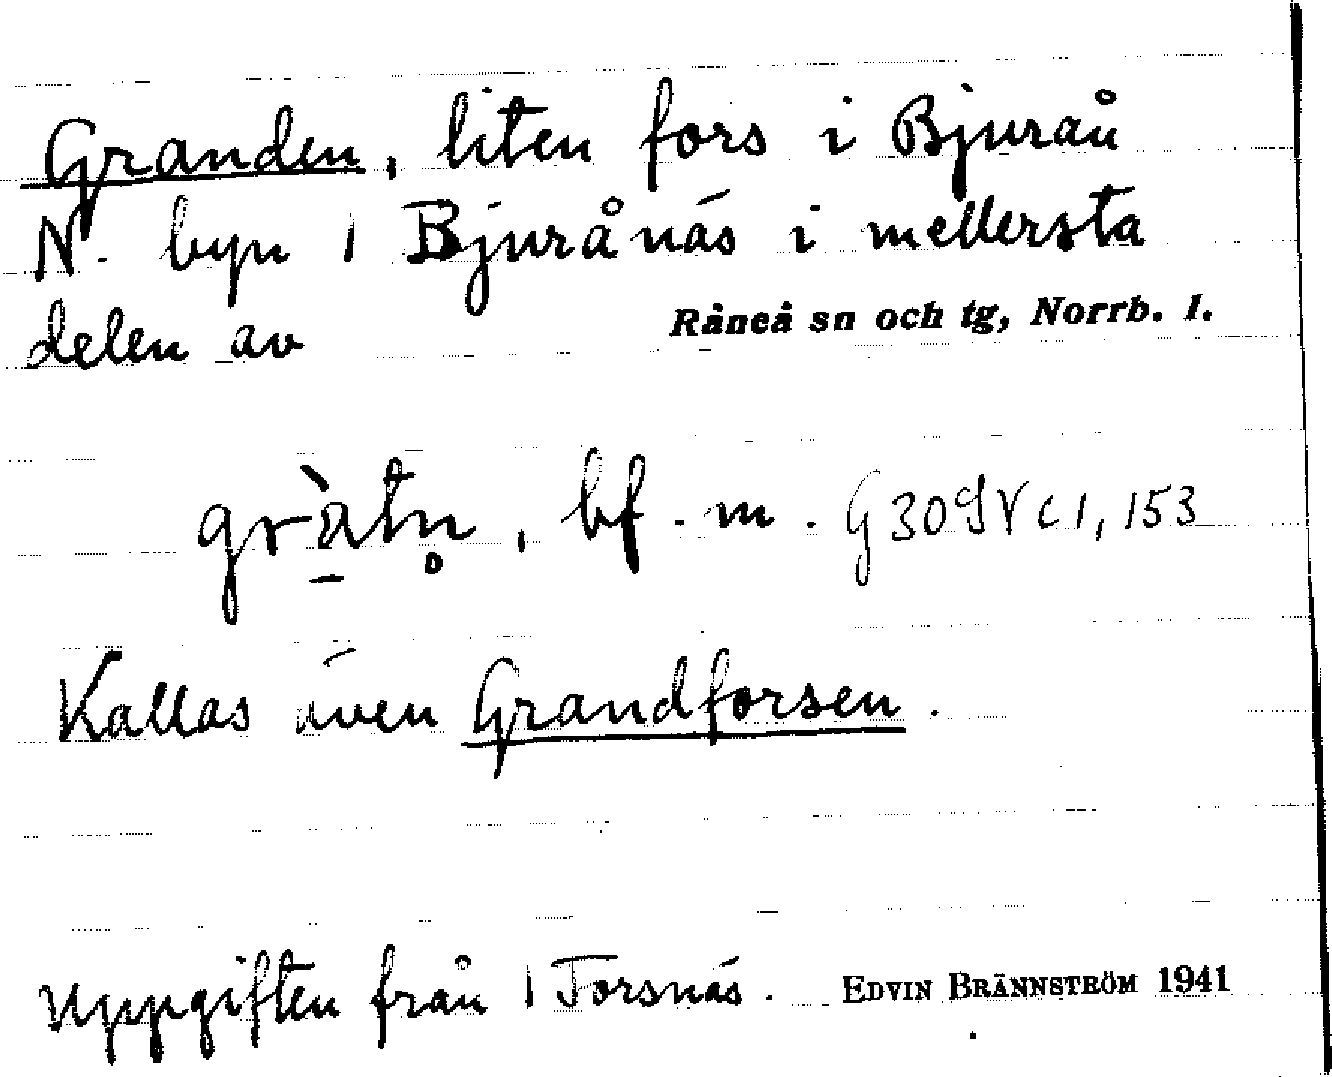 Granden, liten fors i Bjuraå
N. byn 1 Bjurånäs i mellersta
delen av Råneå sn och tg, Norrb. l.
grà̠tn̥, bf. m. G 309 V c 1, 153
Kallas även Grandforsen.
Uppgiften från 1 Forsnäs. EDVIN BRÄNNSTRÖM 1941